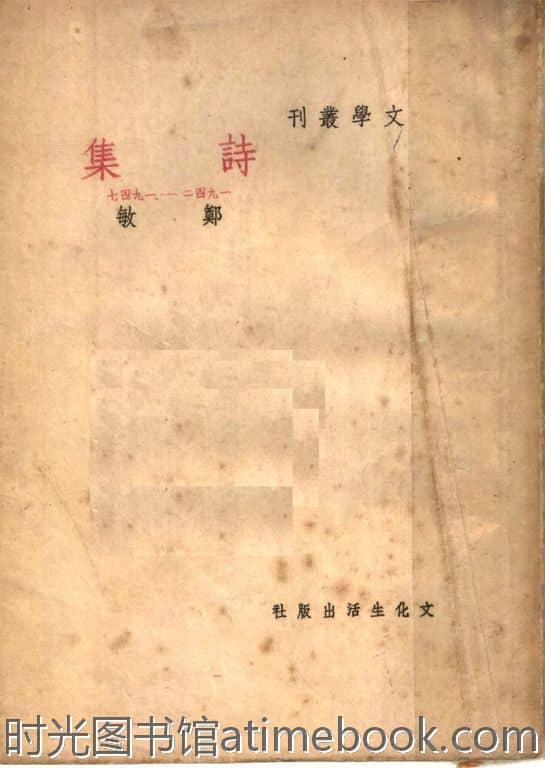 文學叢刊
詩集
一九四二——一九四七
鄭敏
文化生活出版社
时光图书馆atimebook.com